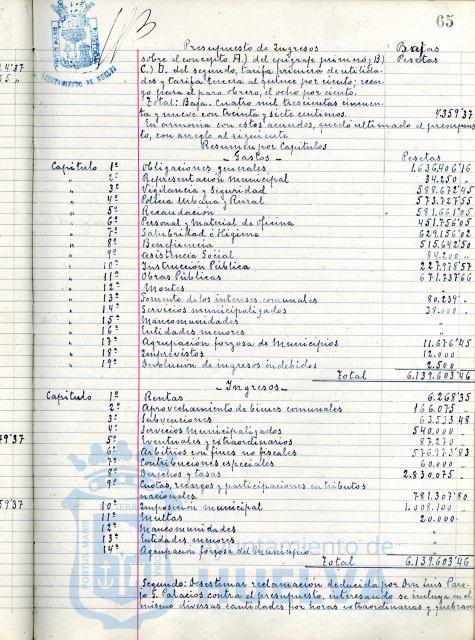 65
Presupuesto de Ingresos Bajas
sobre el concepto A.) del epígrafe primero; B) Pesetas
C.) D. del segundo, tarifa primera de utilida-
des y tarifa tercera al quince por ciento; recar-
go para el paro obrero, el ocho por ciento.
Total: Baja. Cuatro mil trescientas cincuen-
ta y nueve con treinta y siete centimos. 4.359'37
En armonia con estos acuerdos, quedó ultimado el presupues-
to, con arreglo al siguiente
Resumen por Capítulos
- Gastos - Pesetas
Capítulo 1º Obligaciones generales 1.636.406'16
" 2º Representación municipal 34.250 "
" 3º Vigilancia y seguridad 588.672'45
" 4º Policía Urbana y Rural 573.727'55
" 5º Recaudación 581.661'05
" 6º Personal y Material de oficina 451.756'05
" 7º Salubridad e Higiene 629.156'02
" 8º Beneficencia 515.642'50
" 9º Asistencia Social 84.200 "
" 10º Instrucción Pública 227.978'57
" 11º Obras Públicas 671.737'66
" 12º Montes
" 13º Fomento de los intereses comunales 80.239 "
" 14º Servicios municipalizados 38.000 "
" 15º Mancomunidades
" 16º Entidades menores
" 17º Agrupación forzosa de Municipios 11.676'45
" 18º Imprevistos 12.000
" 19º Devolución de ingresos indebidos 2.500
Total 6.139.603'46
- Ingresos -
Capítulo 1º Rentas 6.268'35
2º Aprovechamiento de bienes comunales 166.075 "
3º Subvenciones 63.533'48
4º Servicios Municipalizados 540.000
5º Eventuales y extraordinarios 87.270
6º Arbitrios con fines no fiscales 576.973'83
7º Contribuciones especiales 60.000
8º Derechos y tasas 2.830.075
9º Cuotas, recargos y participaciones en tributos
nacionales 781.307'80
10º Imposición municipal 1.008.100
11º Multas 20.000
12º Mancomunidades
13º Entidades menores
14º Agrupación forzosa del Municipio
Total 6.139.603'46
Segundo: Desestimar reclamación deducida por Don Luis Pare-
jo G. Palacios contra el presupuesto, interesando se incluya en el
mismo diversas cantidades por horas extraordinarias y quebran
Ayuntamiento de
HUELVA
AYUNTAMIENTO DE HUELVA
PORTUS MARIS